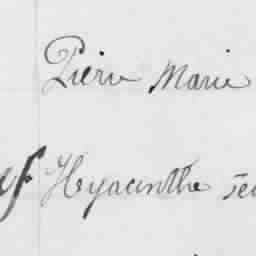 Pierre Marie
Hyacinthe